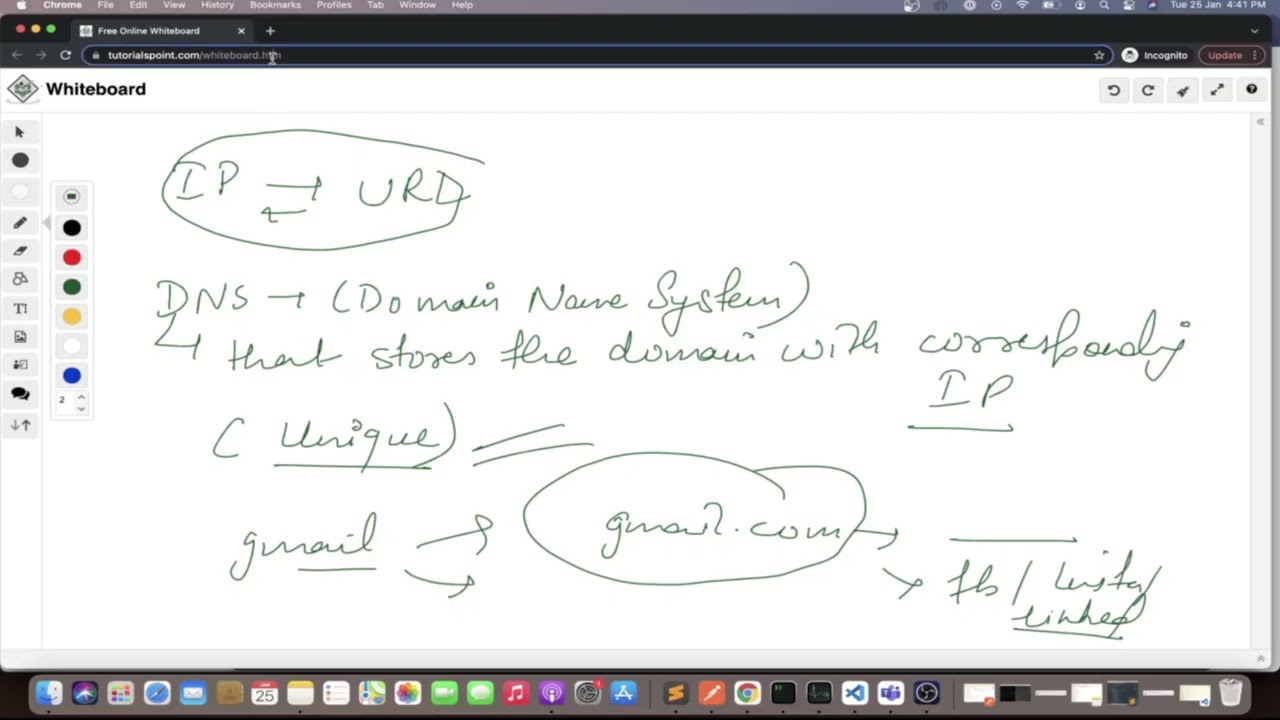 Chrome File Edit View History Bookmarks Profiles Tab Window Help Tue 25 Jan 4:41 PM
Free Online Whiteboard
tutorialspoint.com/whiteboard.htm Incognito Update
Whiteboard
IP → URL
←
DNS → (Domain Name System)
↳ that stores the domain with corresponding
IP
( Unique)
gmail → gmail.com →
→ fb / Insta/
linked
TI
2
JAN
25
1